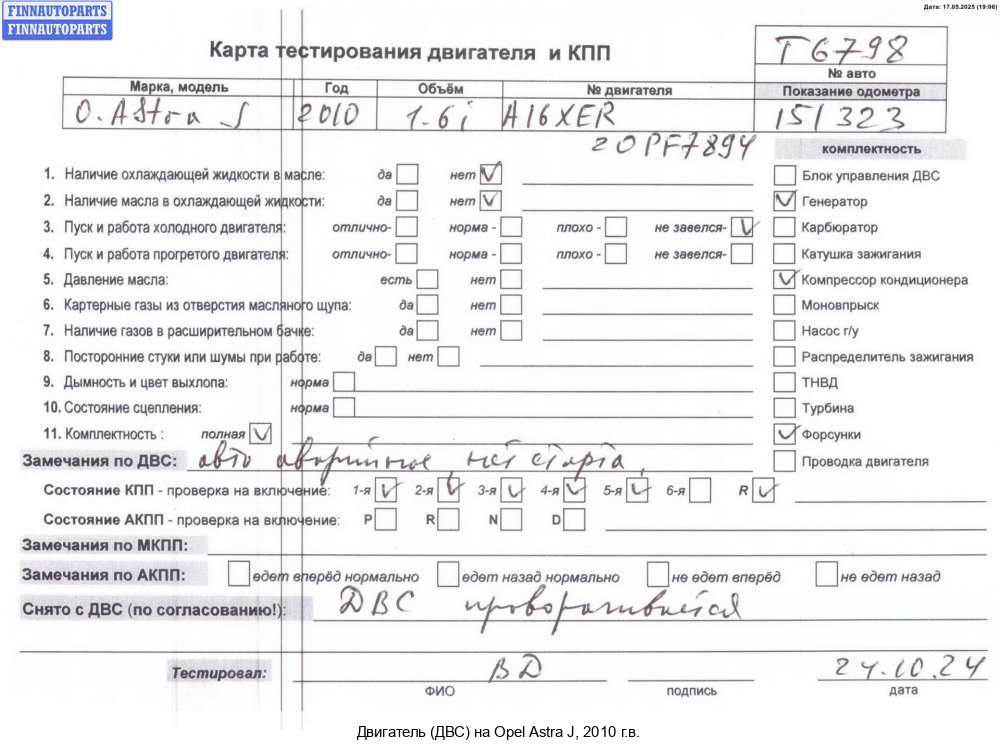 FINNAUTOPARTS
FINNAUTOPARTS
Дата: 17.05.2025 (19:06)
Карта тестирования двигателя и КПП
T6798
№ авто
Марка, модель Год Объём № двигателя Показание одометра
O. Astra J 2010 1.6i A16XER 151323
20PF7894
комплектность
1. Наличие охлаждающей жидкости в масле: да нет
Блок управления ДВС
2. Наличие масла в охлаждающей жидкости: да нет
Генератор
3. Пуск и работа холодного двигателя: отлично- норма - плохо - не завелся-
Карбюратор
4. Пуск и работа прогретого двигателя: отлично- норма - плохо - не завелся-
Катушка зажигания
5. Давление масла: есть нет
Компрессор кондиционера
6. Картерные газы из отверстия масляного щупа: да нет
Моновпрыск
7. Наличие газов в расширительном бачке: да нет
Насос г/у
8. Посторонние стуки или шумы при работе: да нет
Распределитель зажигания
9. Дымность и цвет выхлопа: норма
ТНВД
10. Состояние сцепления: норма
Турбина
11. Комплектность : полная
Форсунки
Замечания по ДВС: авто аварийное, нет старта,
Проводка двигателя
Состояние КПП - проверка на включение: 1-я 2-я 3-я 4-я 5-я 6-я R
Состояние АКПП - проверка на включение: P R N D
Замечания по МКПП:
Замечания по АКПП: едет вперёд нормально едет назад нормально не едет вперёд не едет назад
Снято с ДВС (по согласованию!): ДВС проворачивается
Тестировал: ВД 24.10.24
ФИО подпись дата
Двигатель (ДВС) на Opel Astra J, 2010 г.в.